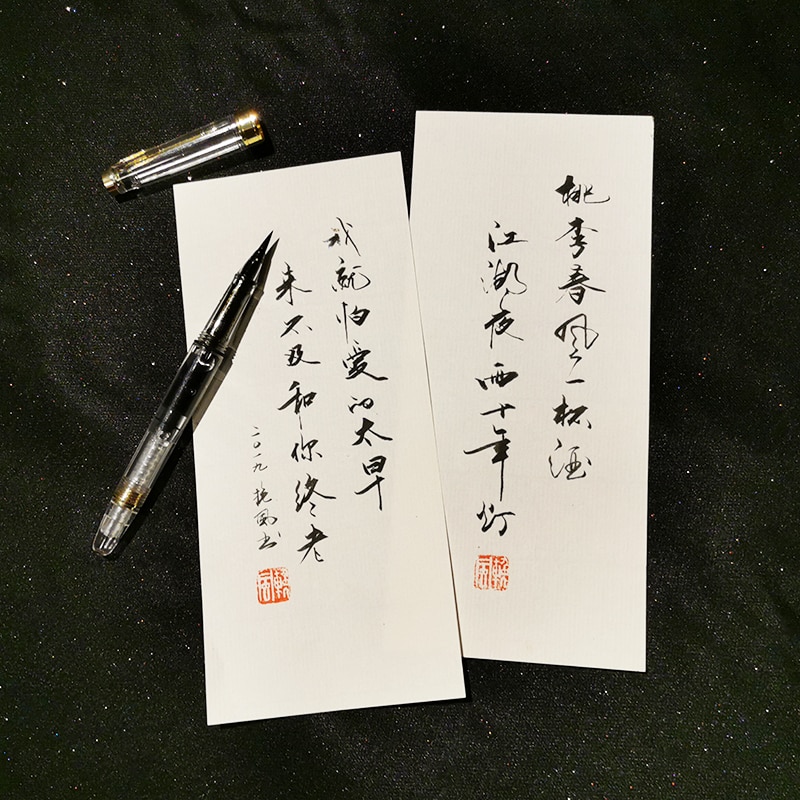 桃李春风一杯酒
江湖夜雨十年灯
我就怕爱的太早
来不及和你终老
二〇一九 挽風书